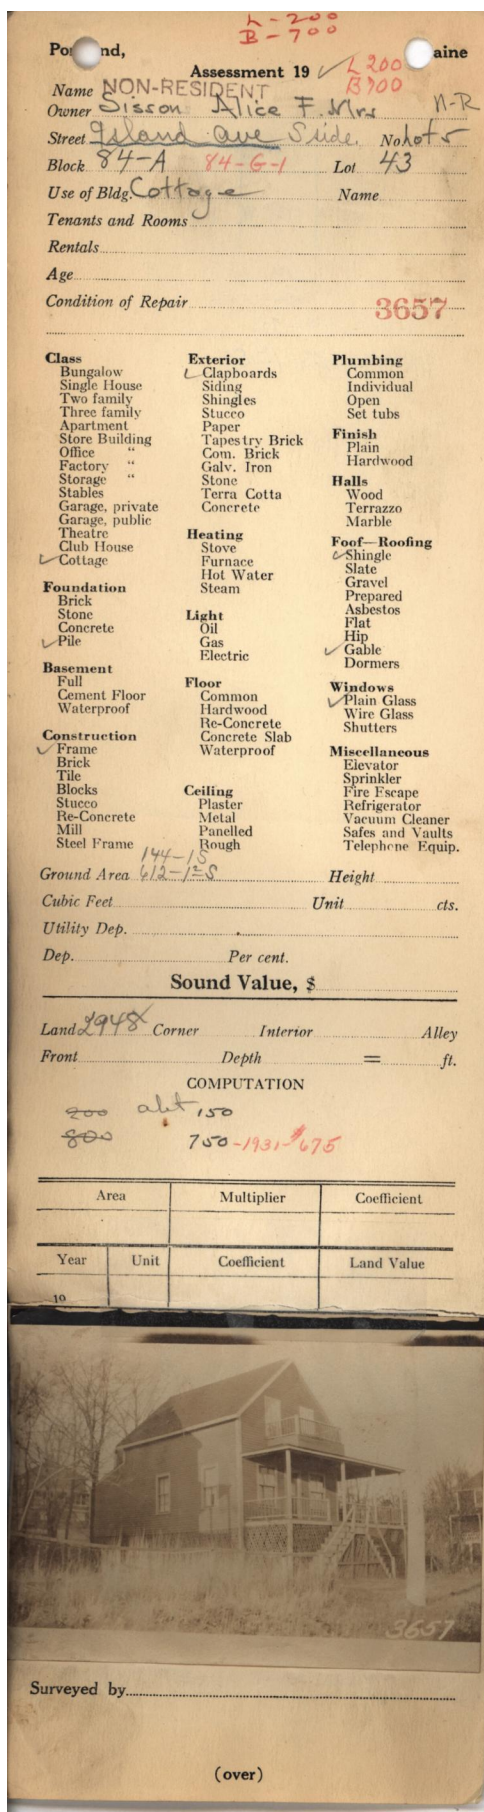 L-200
B-700
Portland, Maine
Assessment 19 ✓ L 200
Name NON-RESIDENT B 700
Owner Sisson Alice F. Mrs N-R
Street Island ave S side. No. Lot 5
Block 84-A 84-G-1 Lot 43
Use of Bldg. Cottage Name
Tenants and Rooms
Rentals
Age
Condition of Repair 3657
Class
Bungalow
Single House
Two family
Three family
Apartment
Store Building
Office "
Factory "
Storage "
Stables
Garage, private
Garage, public
Theatre
Club House
✓ Cottage
Foundation
Brick
Stone
Concrete
✓ Pile
Basement
Full
Cement Floor
Waterproof
Construction
✓ Frame
Brick
Tile
Blocks
Stucco
Re-Concrete
Mill
Steel Frame
Exterior
✓ Clapboards
Siding
Shingles
Stucco
Paper
Tapestry Brick
Com. Brick
Galv. Iron
Stone
Terra Cotta
Concrete
Heating
Stove
Furnace
Hot Water
Steam
Light
Oil
Gas
Electric
Floor
Common
Hardwood
Re-Concrete
Concrete Slab
Waterproof
Ceiling
Plaster
Metal
Panelled
Rough
Plumbing
Common
Individual
Open
Set tubs
Finish
Plain
Hardwood
Halls
Wood
Terrazzo
Marble
Foof—Roofing
✓ Shingle
Slate
Gravel
Prepared
Asbestos
Flat
Hip
✓ Gable
Dormers
Windows
✓ Plain Glass
Wire Glass
Shutters
Miscellaneous
Elevator
Sprinkler
Fire Escape
Refrigerator
Vacuum Cleaner
Safes and Vaults
Telephone Equip.
144-1S
Ground Area 612-1½S Height
Cubic Feet Unit cts.
Utility Dep.
Dep. Per cent.
Sound Value, $
Land 2948 Corner Interior Alley
Front Depth = ft.
COMPUTATION
200 abt 150
800 750-1931-$675
Area Multiplier Coefficient
Year Unit Coefficient Land Value
19
3657
Surveyed by
(over)